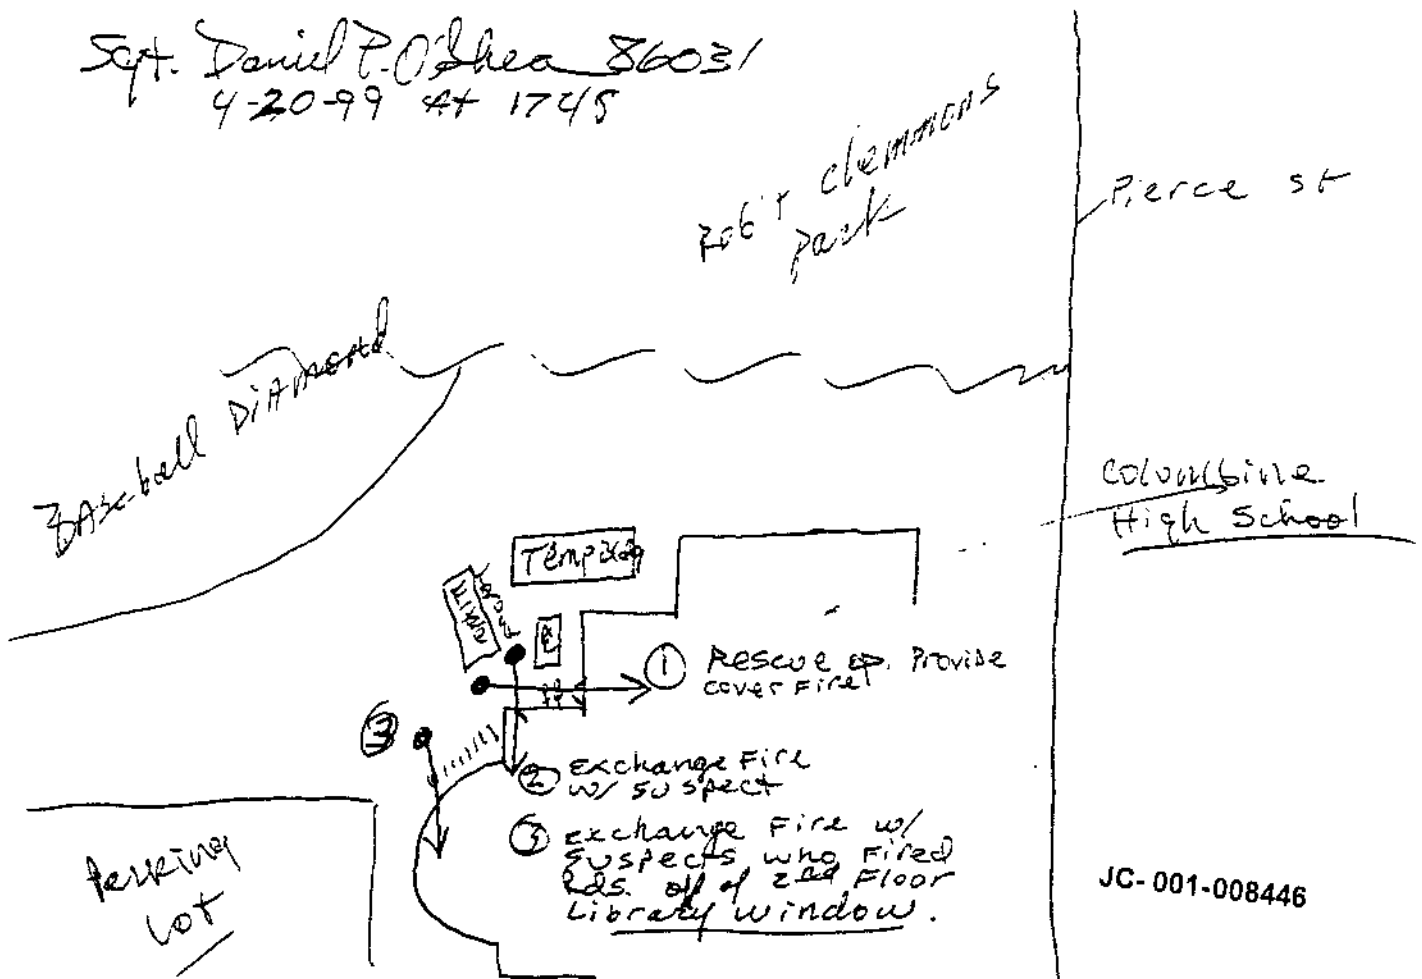 Sgt. Daniel P. O'Shea 86031
4-20-99 At 1745
Rob't clemmons
park
Pierce st
BAseball DiAmond
Columbine
High School
Temp Bldg
① Rescue op. Provide
cover Fire
② Exchange Fire
w/ suspect
③
③ exchange Fire w/
suspects who Fired
Rds. off of 2nd Floor
Library window.
Parking
Lot
JC-001-008446